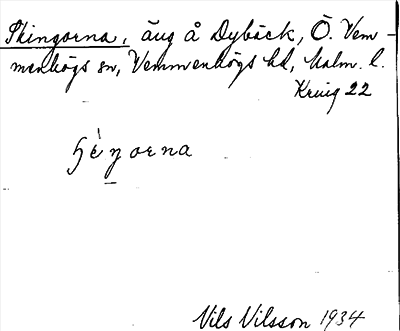 Skingorna, äng å Dybäck, Ö. Vem-
menhögs sn, Vemmenhögs hd, Malm. l.
Kring 22
ɧèŋorna
Nils Nilsson 1934